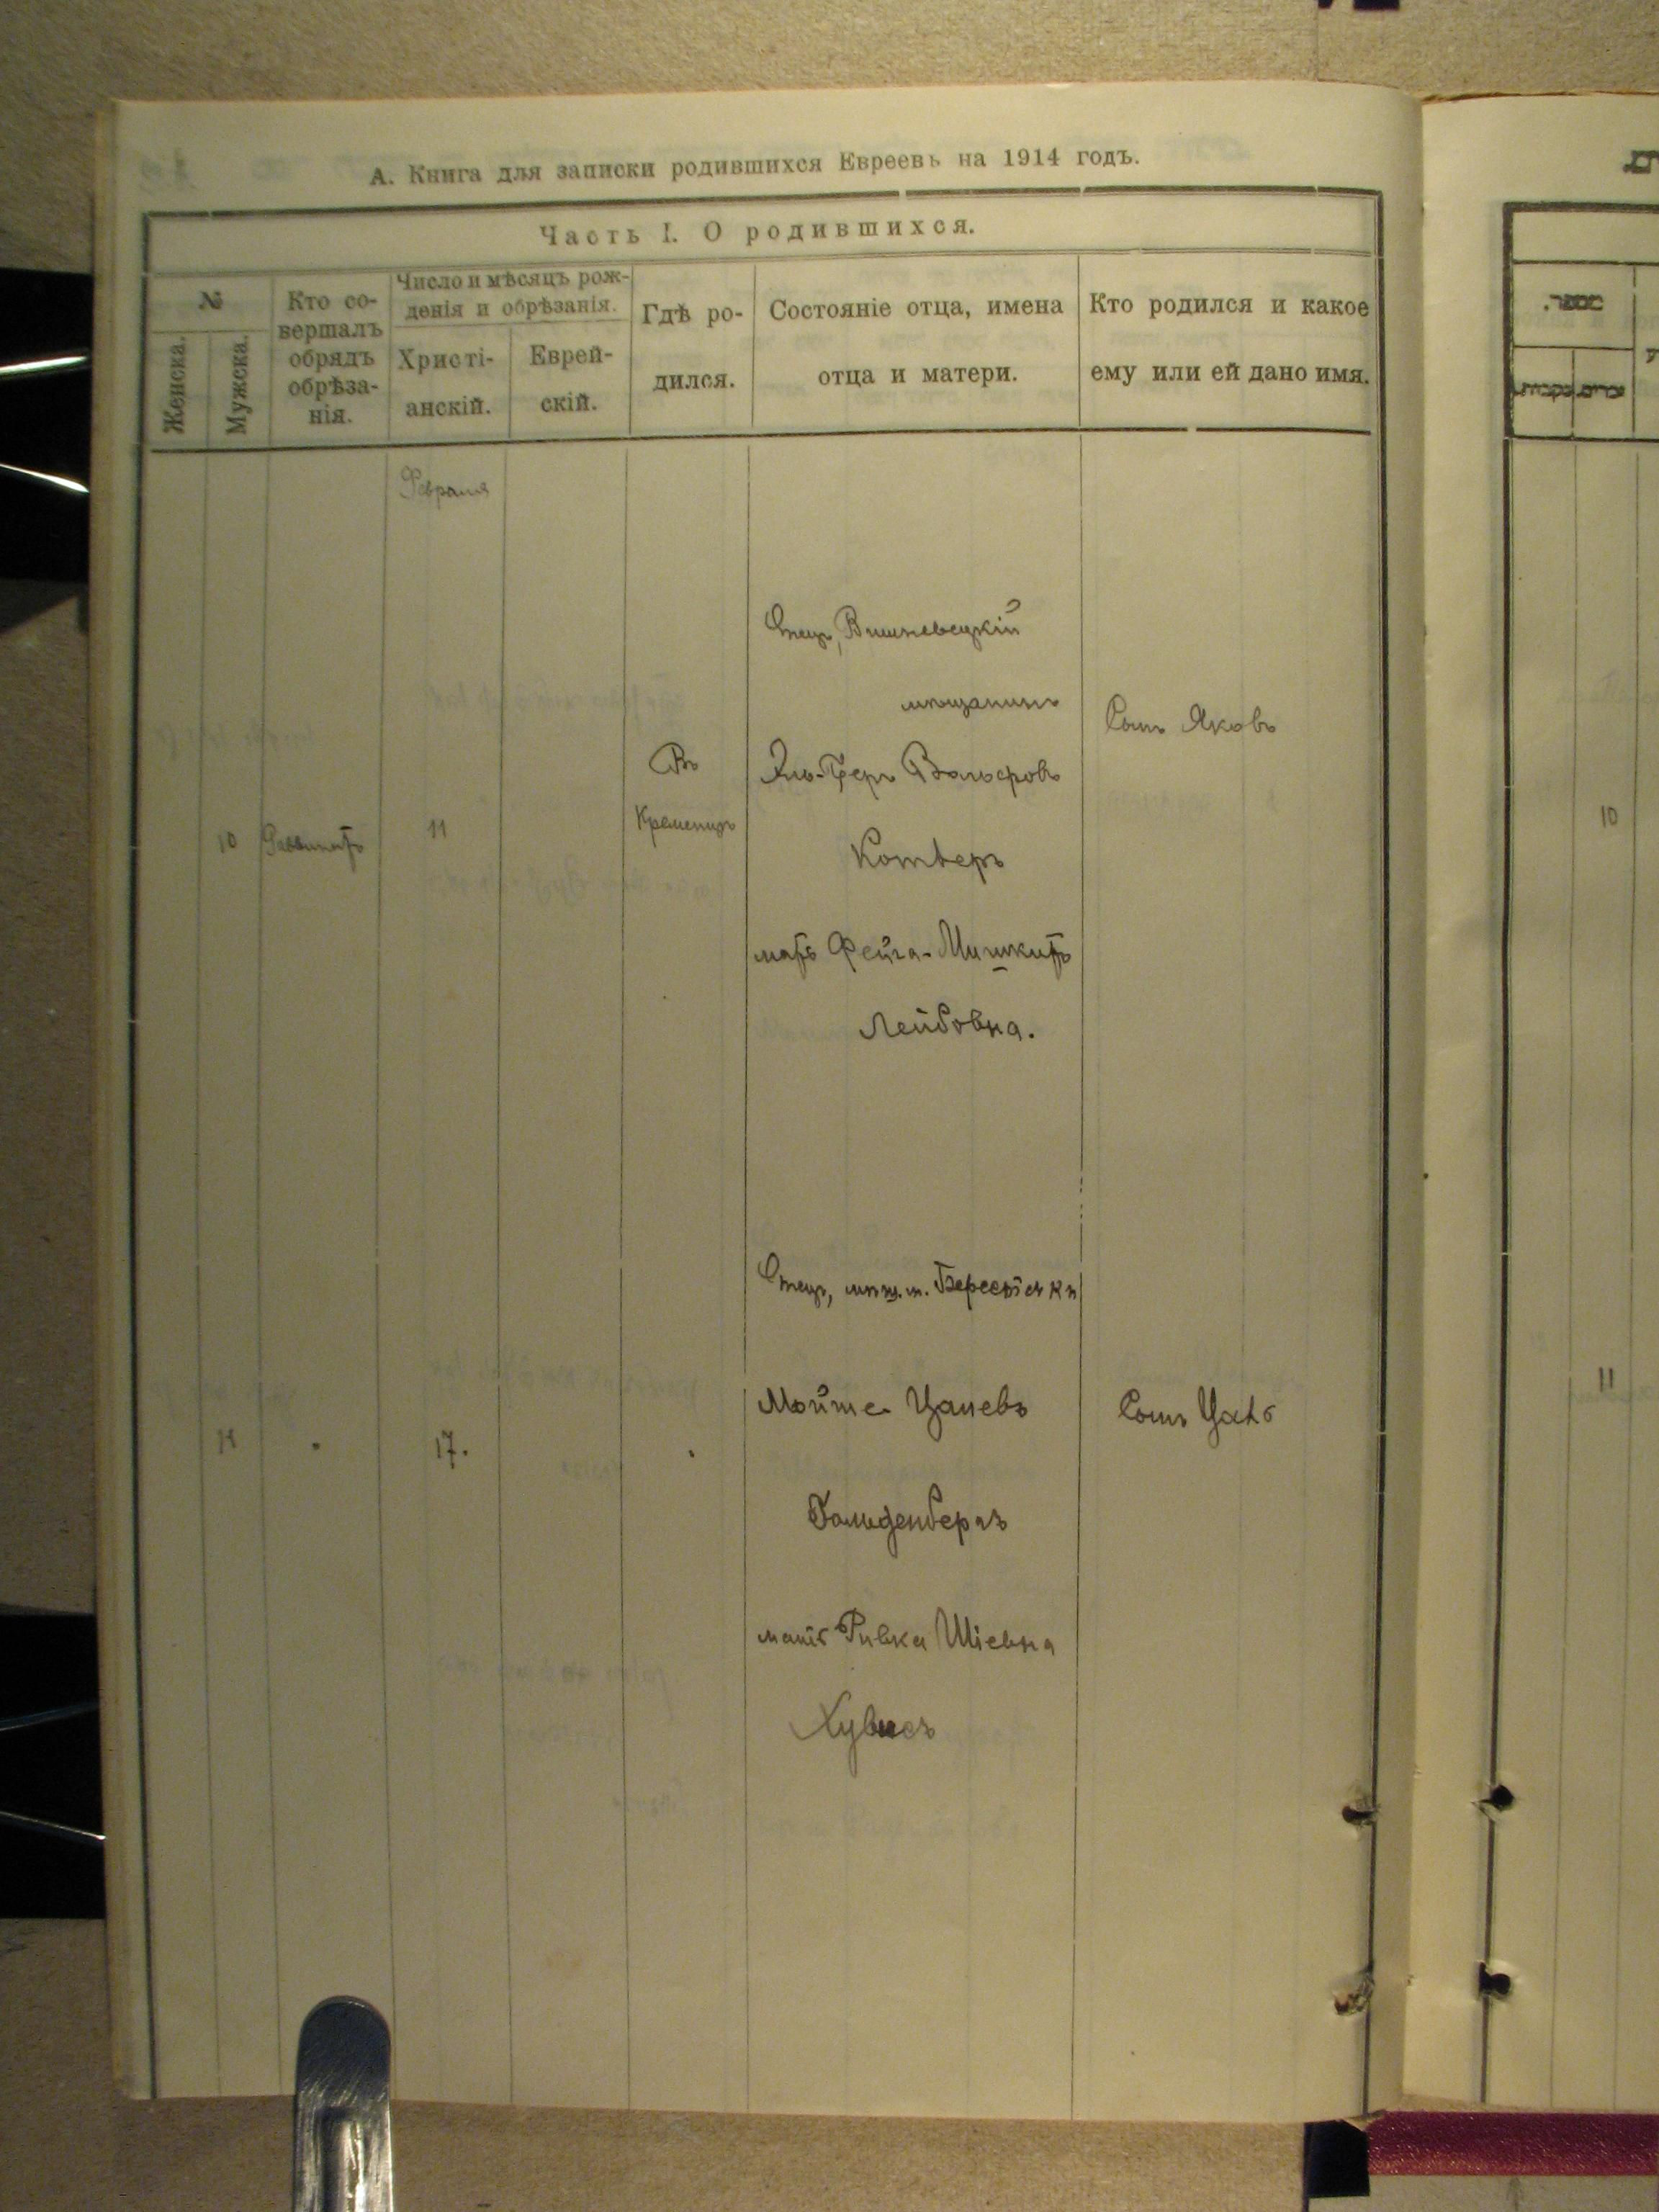 А. Книга для записки родившихся Евреевъ на 1914 годъ.
Часть I. О родившихся.
№
Женска.
Мужска.
Кто со-
вершалъ
обрядъ
обрѣза-
нія.
Число и мѣсяцъ рож-
денія и обрѣзанія.
Христі-
анскій.
Еврей-
скій.
Гдѣ ро-
дился.
Состояніе отца, имена
отца и матери.
Кто родился и какое
ему или ей дано имя.
Февраля
10
11
Въ
Кременцѣ
Отецъ, Вишневецкій
мѣщанинъ
Вольфовъ
Котверъ
мать Фейга-
Лейбовна.
Сынъ Яковъ
11
17.
Отецъ, мѣщ. м. Берестечка
Мойше Цалевъ
Гольденбергъ
мать Ривка Шіевна
Сынъ Цаль
10
11